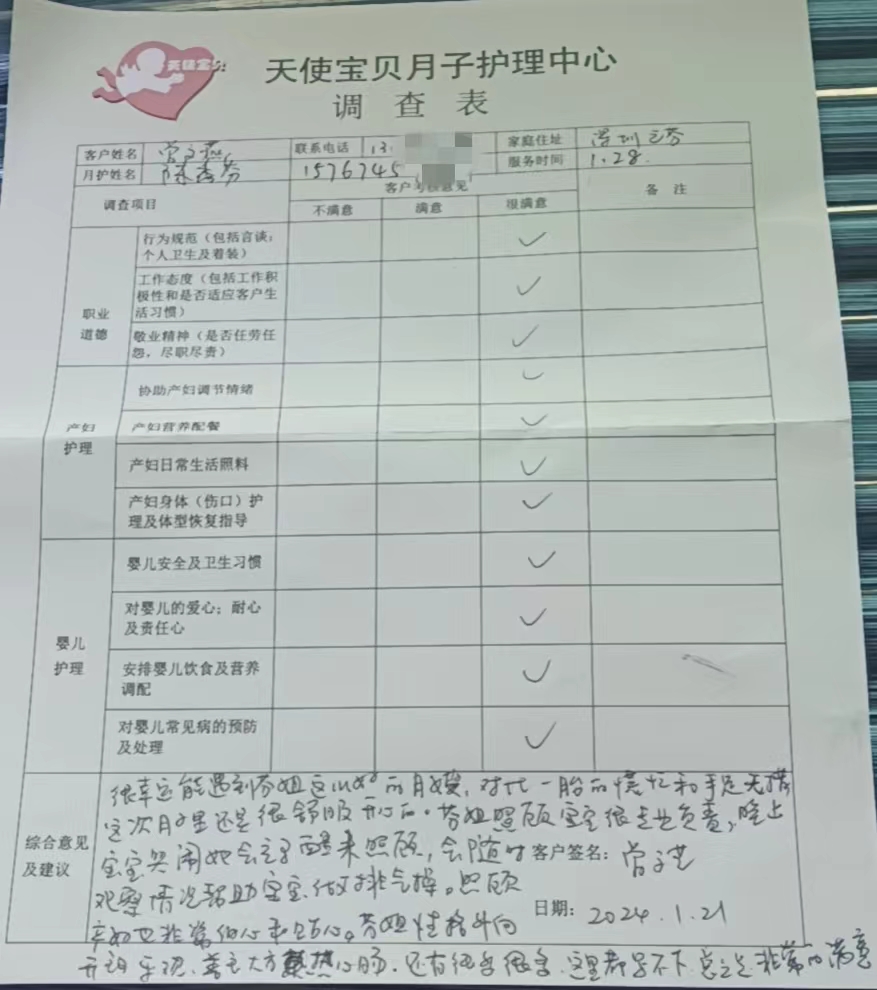 天使宝贝
天使宝贝月子护理中心
调查表
客户姓名 联系电话 13 家庭住址 深圳
月护姓名 陈秀芬 1576745 服务时间 1.28.
调查项目 客户考核意见 备注
不满意 满意 很满意
职业道德
行为规范（包括言谈；
个人卫生及着装） ✓
工作态度（包括工作积
极性和是否适应客户生
活习惯） ✓
敬业精神（是否任劳任
怨，尽职尽责） ✓
产妇护理
协助产妇调节情绪 ✓
产妇营养配餐 ✓
产妇日常生活照料 ✓
产妇身体（伤口）护
理及体型恢复指导 ✓
婴儿护理
婴儿安全及卫生习惯 ✓
对婴儿的爱心；耐心
及责任心 ✓
安排婴儿饮食及营养
调配 ✓
对婴儿常见病的预防
及处理 ✓
综合意见
及建议
很幸运能遇到芬姐这么好的月嫂，对比一胎的慌忙和手足无措
这次月子里还是很舒服开心的。芬姐照顾宝宝很专业负责，晚上
宝宝哭闹她会立马醒来照顾，会随时
观察情况帮助宝宝做排气操。照顾
产妇也非常细心和贴心。芬姐性格外向
开朗乐观、善良大方热心肠。还有很多很多，这里都写不下，总之是非常的满意
客户签名：
日期：2024.1.21